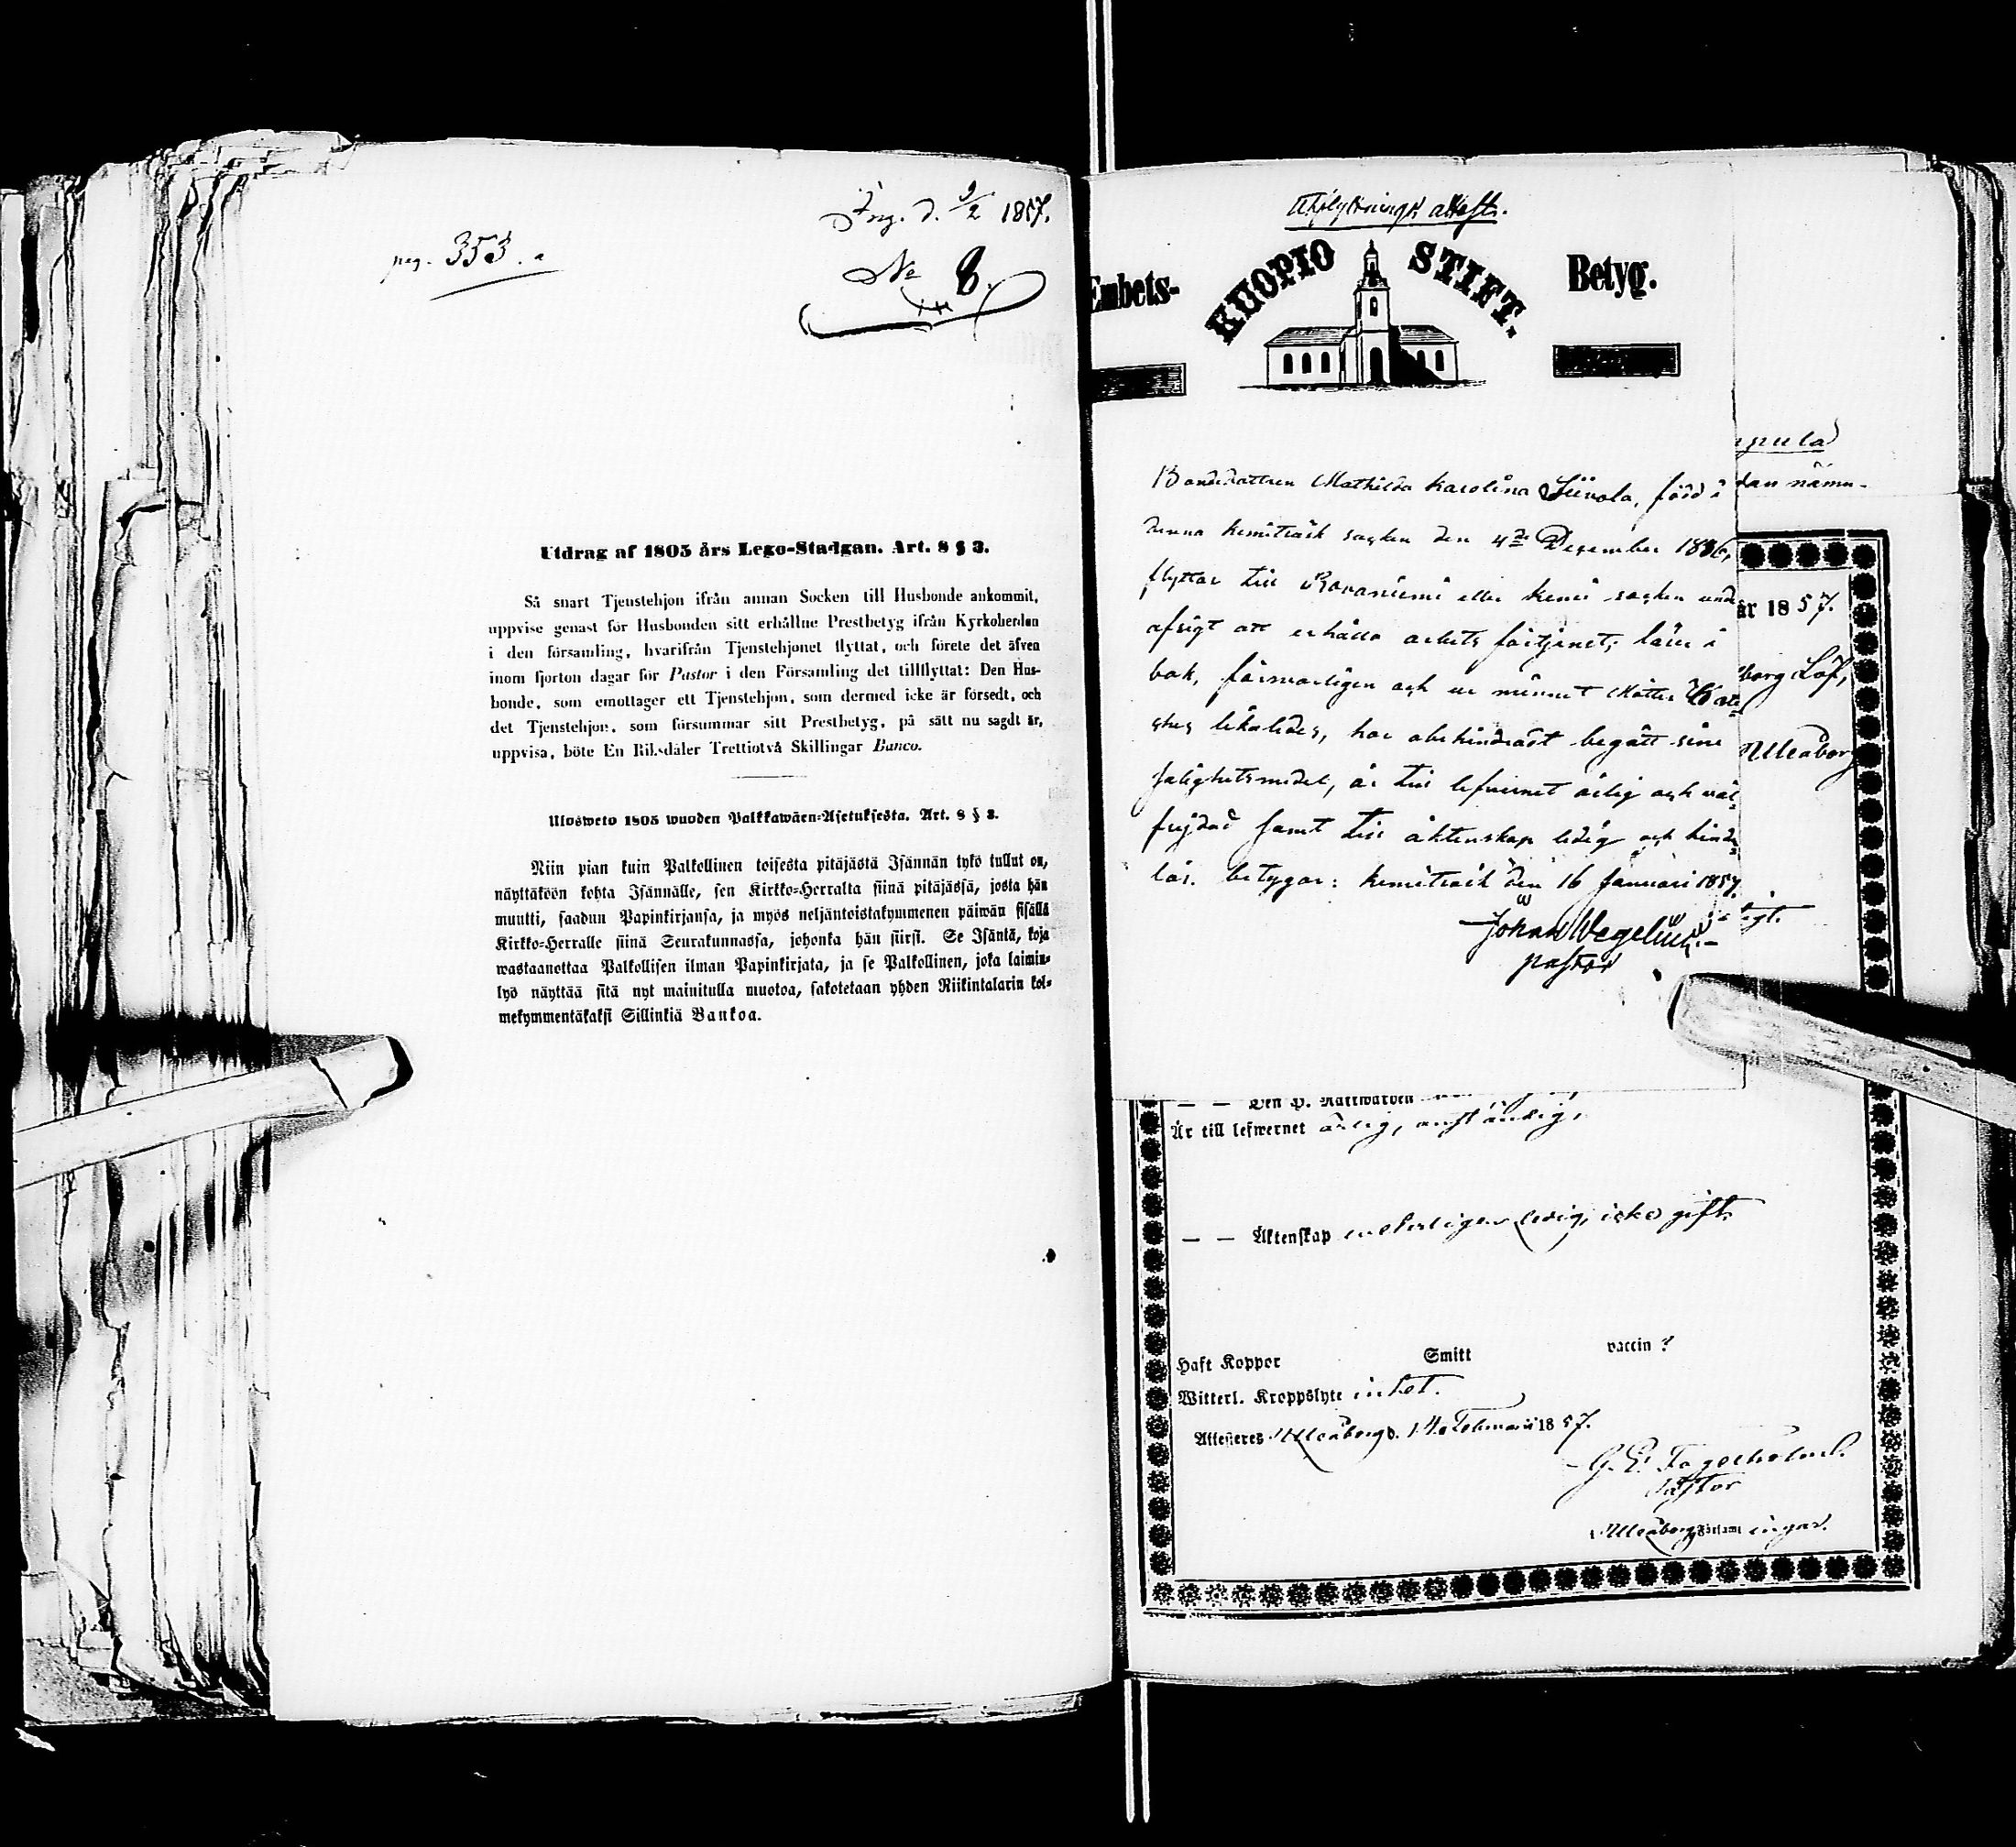 pag. 353.
Ing. d. 9/2 1857.
No 8.
Utdrag af 1805 års Lego-Stadgan. Art. 8 § 3.
Så snart Tjenstehjon ifrån annan Socken till Husbonde ankommit,
uppvise genast för Husbonden sitt erhållne Prestbetyg ifrån Kyrkoherden
i den församling, hvarifrån Tjenstehjonet flyttat, och förete det äfven
inom fjorton dagar för Pastor i den Församling det tillflyttat: Den Hus-
bonde, som emottager ett Tjenstehjon, som dermed icke är försedt, och
det Tjenstehjon, som försummar sitt Prestbetyg, på sätt nu sagdt är,
uppvisa, böte En Rik.sdaler Trettiotvå Skillingar Banco.
Ulosweto 1805 wuoden Palkkawäen-Asetuksesta. Art. 8 § 3.
Niin pian kuin Palkollinen toisesta pitäjästä Isännän tykö tullut on,
näyttäköön kohta Isännälle, sen Kirkko-Herralta siinä pitäjässä, josta hän
muutti, saadun Papinkirjansa, ja myös neljäntoistakymmenen päiwän sisällä
Kirkko-Herralle siinä Seurakunnassa, johonka hän siirsi. Se Isäntä, koja
wastaanottaa Palkollisen ilman Papinkirjata, ja se Palkollinen, joka laimin-
lyö näyttää sitä nyt mainitulla muotoa, sakotetaan yhden Riikintalarin kol-
mekymmentäkaksi Sillinkiä Bankoa.
Utflyttnings attest.
Embets-
KUOPIO STIFT.
Betyg.
Bondedottren Mathilda Karolina Siivola, född i
denna Kemiträsk socken den 4de December 1836,
flyttar till Rovaniemi eller Kemi socken unde
afsigt att erhålla arbets förtjenst; läser i
bok, försvarligen och ur minnet
likaledes, har obehindradt begått sine
salighetsmedel, är till lefvernet ärlig och väl-
frejdad samt till äktenskap ledig och hinder
lös. betygar: Kemiträsk den 16 Januari 1857.
Johan Wegelius.
pastor
dan nämn-
år 1857.
borg Löf,
Uleåborg
Är till lefwernet ärlig, anständig,
— — Äktenskap ledig, icke gift.
Haft Koppor Smitt vaccin?
Witterl. Kroppslyte intet.
Attesteres Uleåborg d. 14 Februari 1857.
G. E. Fagerholm
Pastor
Uleåborgs Församl